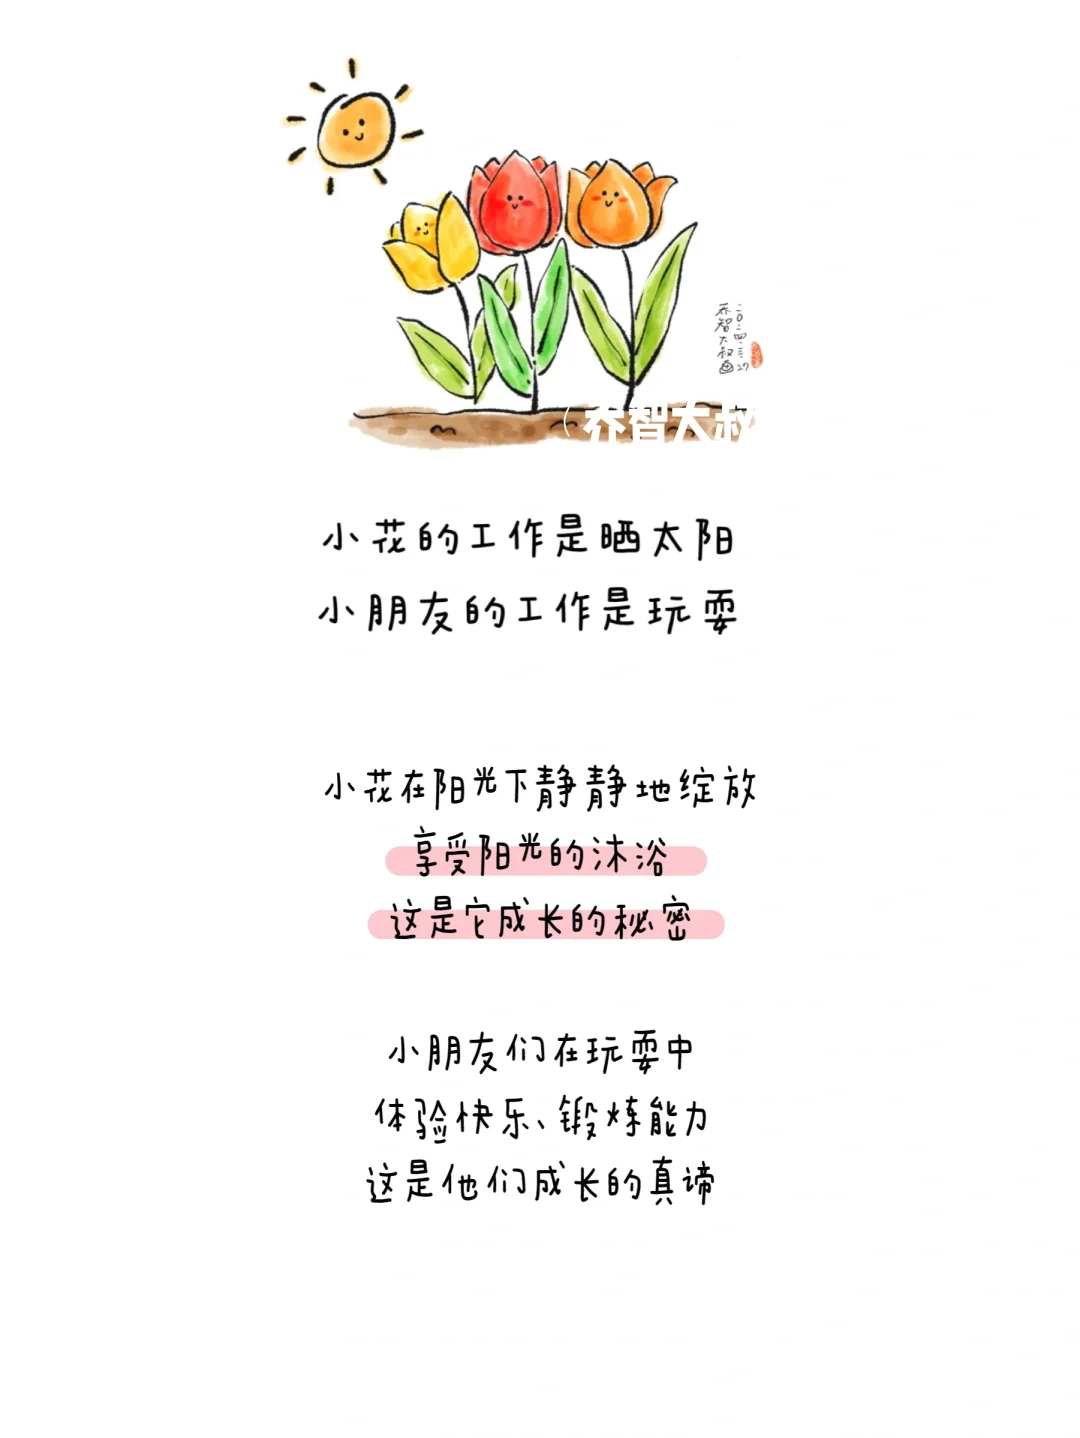 乔智大叔画
二〇二四.三.27
（乔智大叔
小花的工作是晒太阳
小朋友的工作是玩耍
小花在阳光下静静地绽放
享受阳光的沐浴
这是它成长的秘密
小朋友们在玩耍中
体验快乐、锻炼能力
这是他们成长的真谛